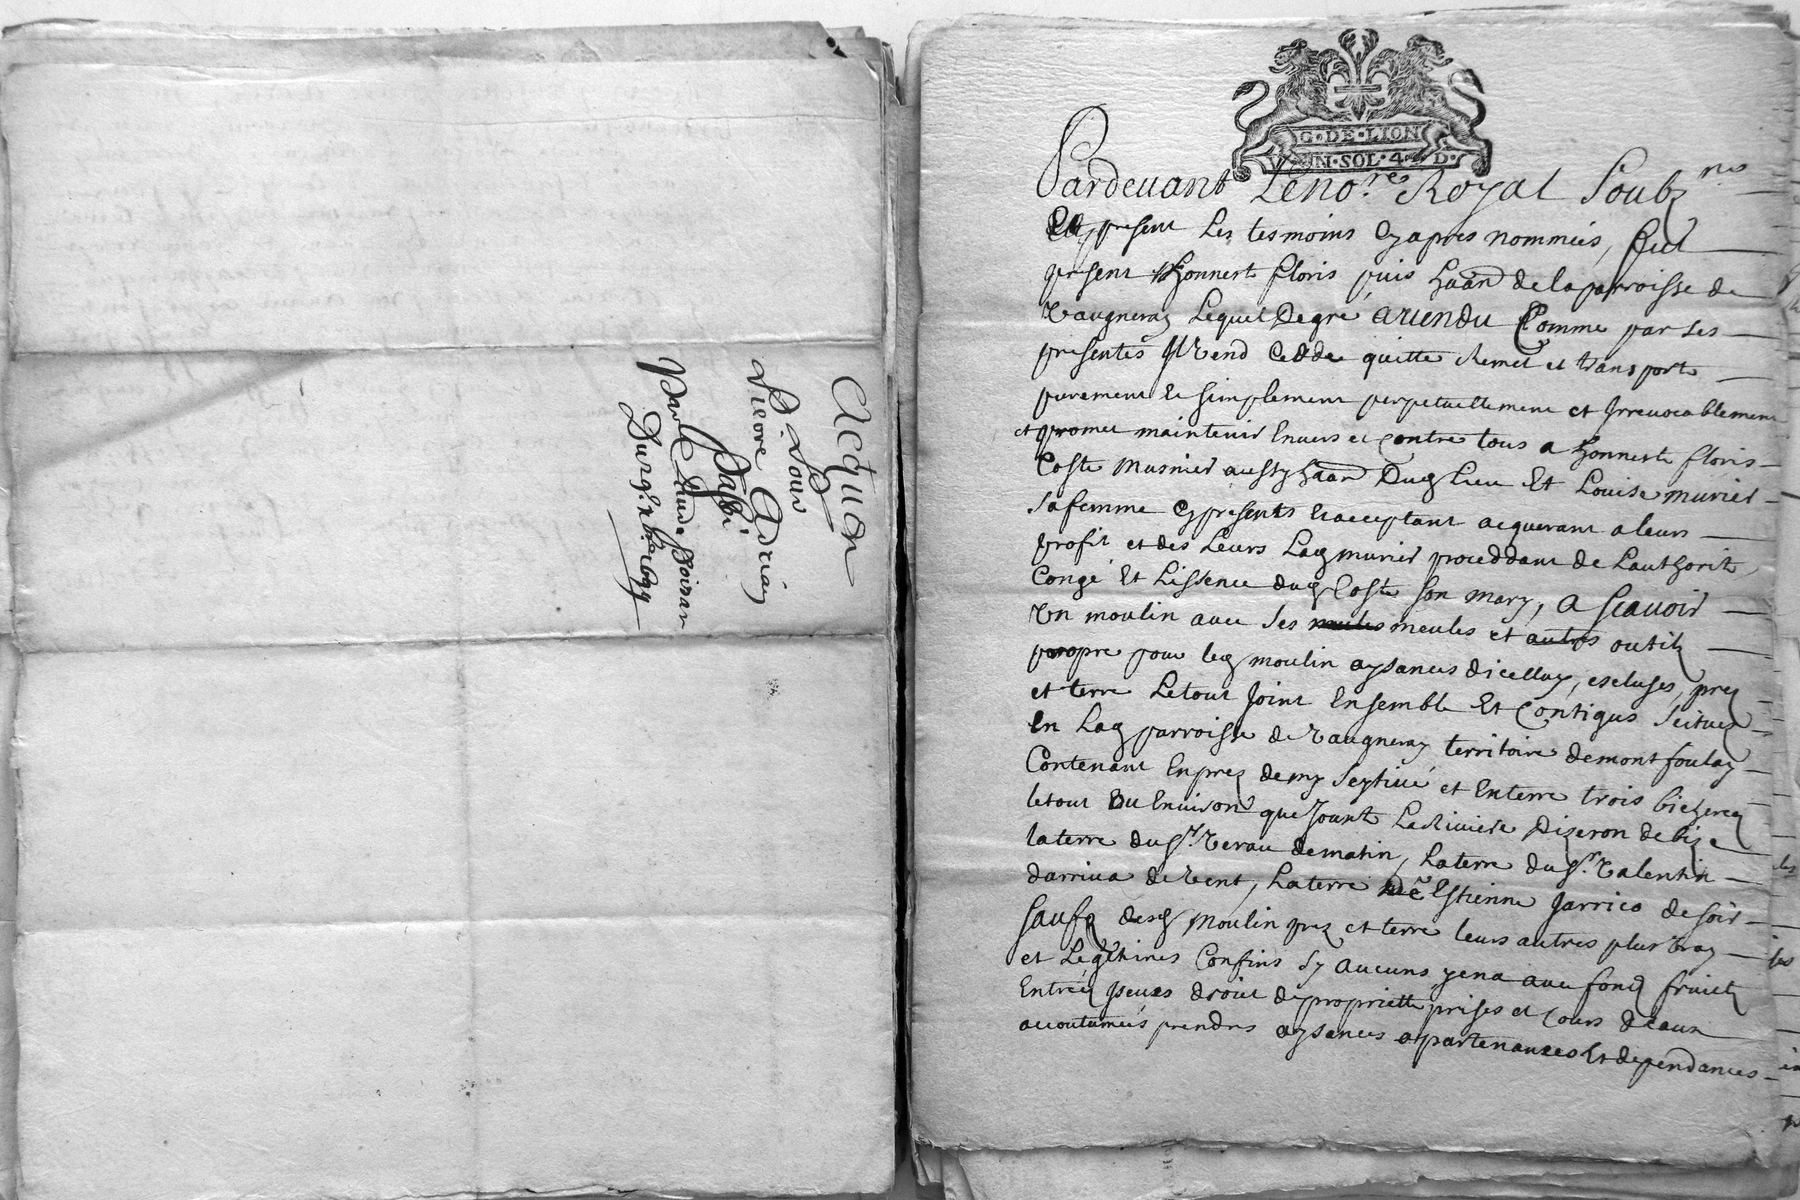 Acquon
Pour
Pieore Adrian
Pabbé
Par Claude Poizar
G·DE·LION
VN·SOL·4·D·
Pardeuant Leno.re Royal Soubz
present Les tesmoins Cyapres nommées, fut
prsent Honneste floris puis de la parroisse de
Vaugneray Lequel Degré A vendu Comme par Ses
presentes Vend Cedde quitte Remet et transporte
purement Et Simplement perpetuellement et Irreuocablement
et promet maintenir Enuers et Contre tous a honneste floris
Coste musnier aussy Dud Lieu Et Louise murier
Sa femme Cypresents Et acceptant acquerant a leur
profit et des Leurs Lad murier proceddant de Lauthorité
Congé Et Lissence dud Coste Son mary, A Scauoir
Vn moulin auec Ses meules et autres outilz
propre pour led moulin aysances dicelluy, escluses, prez
et terre Le tout Joint Ensemble Et Contigus Scituez
En Lad parroisse de Vaugneray territoire de montfoulay
Contenant En prez demy Seytiué et En terre trois bicherez
le tout Ou Enuiron que Jouxt La Riuiere Dizeron de bize
la terre du Sr. Verau de matin, La terre du Sr. Valentin
darriua de Vent, La terre De Estienne Jarrico de Soir
Saufz desd moulin prez et terre leurs autres plus Vray
et Legitimes Confins Sy aucuns y en a auec fondz fruictz
Entrées yssues droict de propriette prises et Cours Deaux
accoutumées prendre aysances apartenances Et dependances